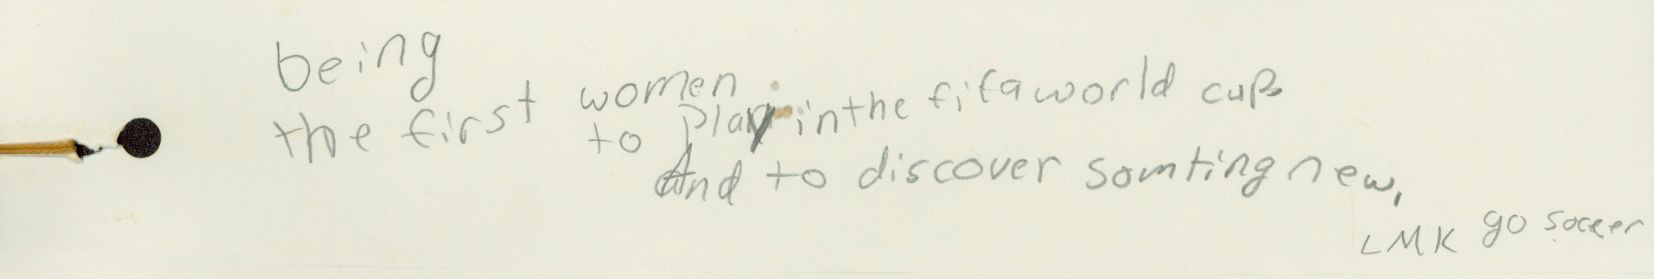 being
the first women
to play in the fifa world cup
And to discover somting new,
LMK go soccer